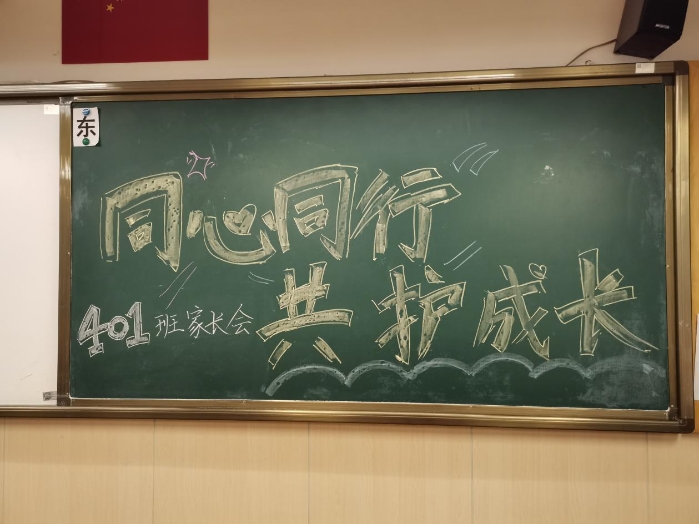 东
同心同行
共护成长
401班家长会